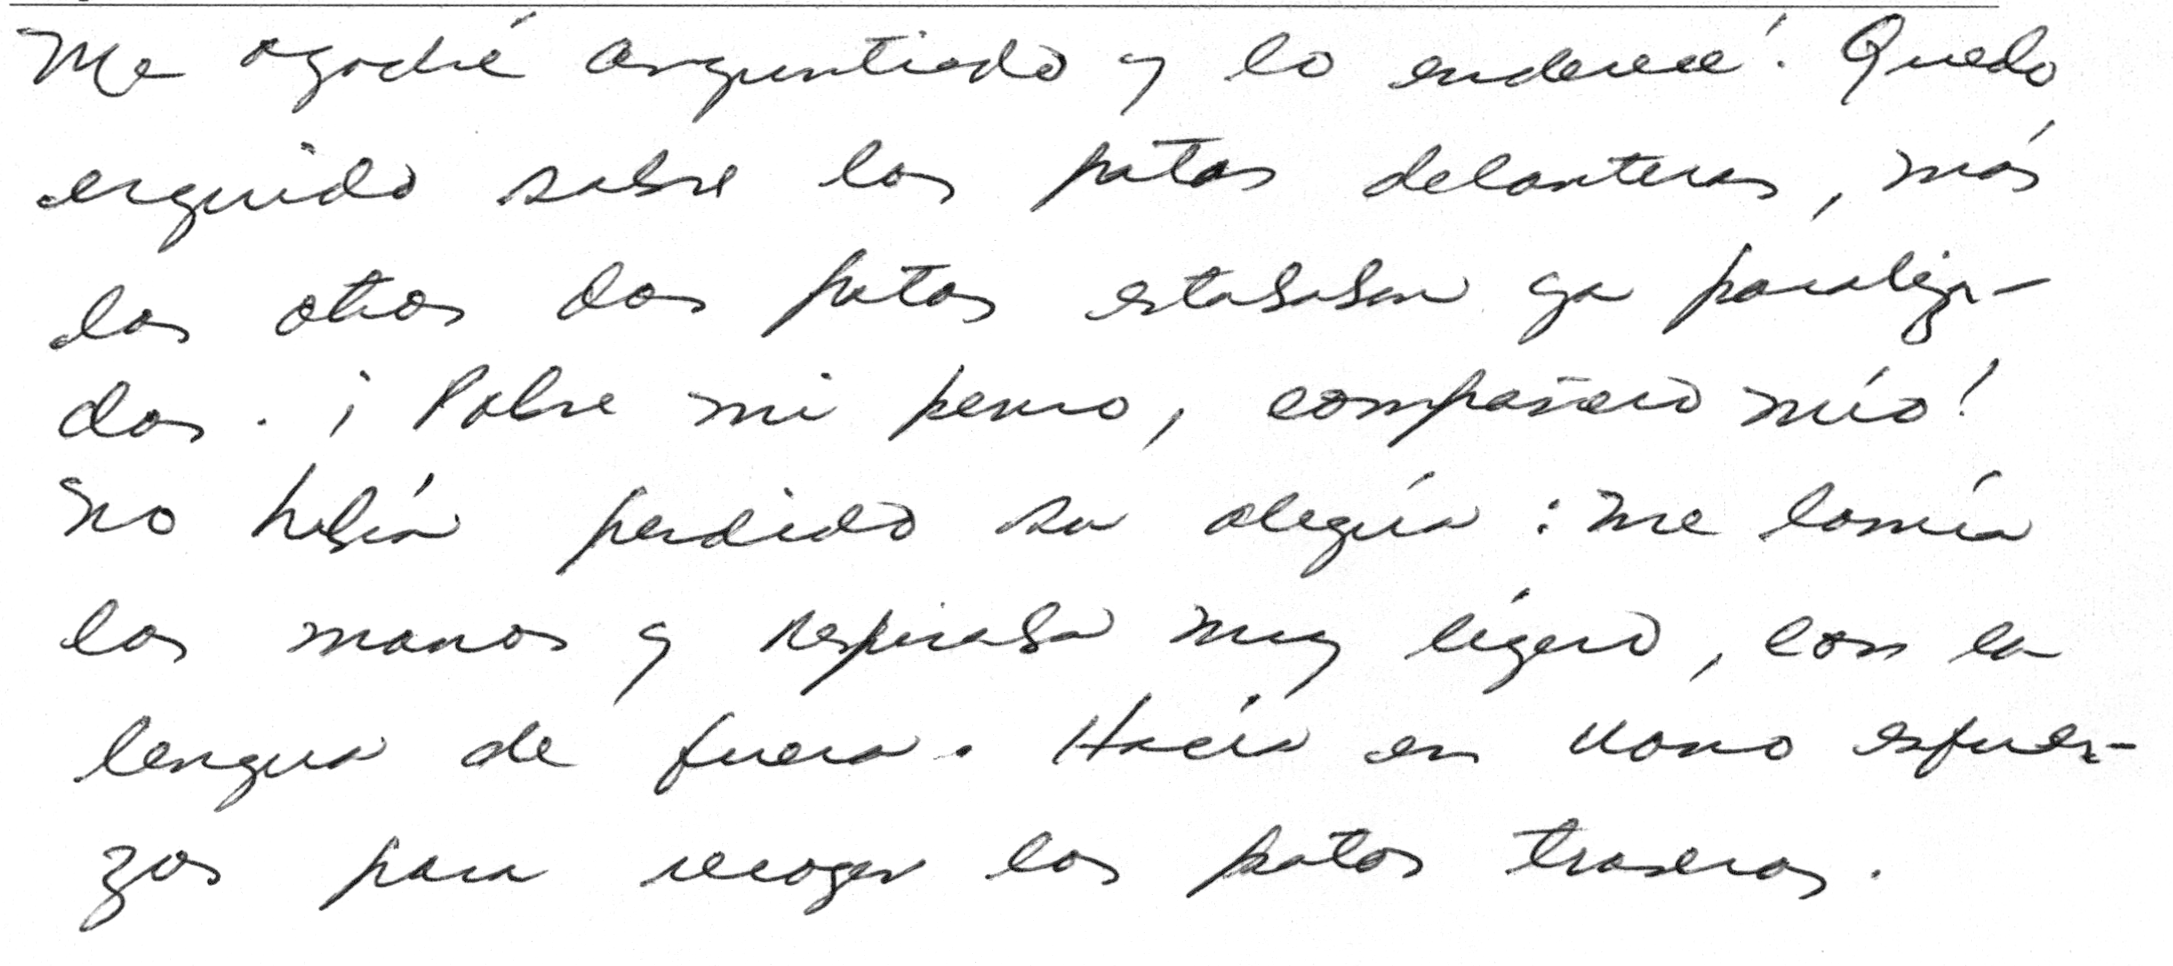 Me agaché angustiado y lo enderecé. Quedo
erguido sobre las patas delanteras, más
las otras dos patas estababan ya paraliza-
das. ¡Pobre mi perro, compañero mío!
No había perdido su alegría: me lamía
las manos y respiraba muy ligero, con la
lengua de fuera. Hacía en vano esfuer-
zos para recoger las patas traseras.